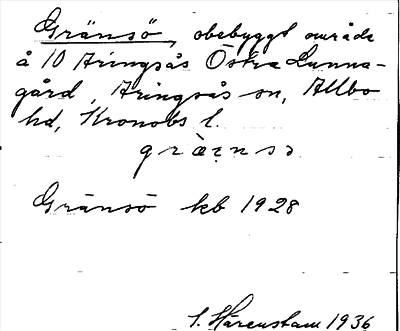 Gränsö, obebyggt område
å 10 Aringsås Östra Lunna-
gård, Aringsås sn, Allbo
hd, Kronobs l.
Gränsö kb 1928
S. Härenstam 1936